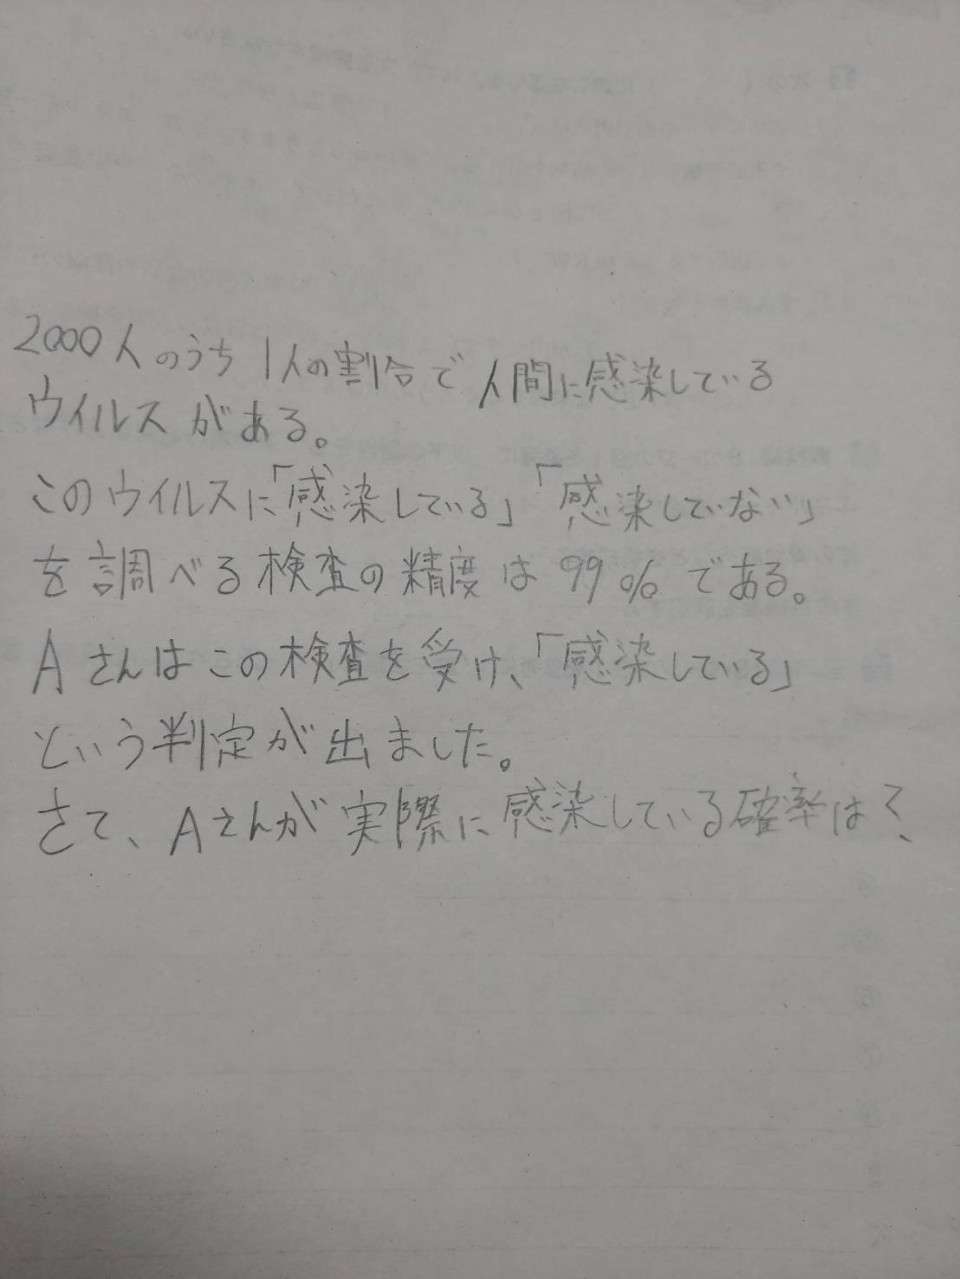 2000人のうち1人の割合で人間に感染している
ウイルスがある。
このウイルスに「感染している」「感染していない」
を調べる検査の精度は99%である。
Aさんはこの検査を受け、「感染している」
という判定が出ました。
さて、Aさんが実際に感染している確率は?